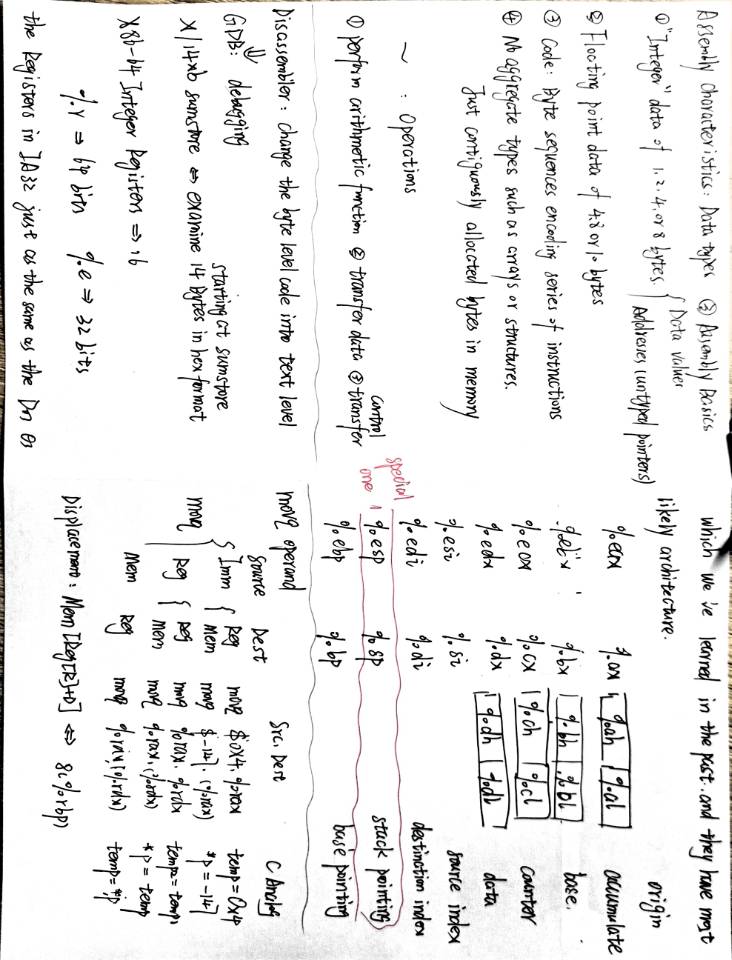 Assembly Characteristics: Data types ② Assembly Basics
①"Integer" data of 1. 2. 4. or 8 bytes. { Data values
Addresses (untyped pointers)
② Floating point data of 4.8 or 10 bytes
③ Code: Byte sequences encoding series of instructions
④ No aggregate types such as arrays or structures.
Just contiguously allocated bytes in memory
~ : Operations
① perform arithmetic function ② transfer data ③ control transfer
Disassembler: change the byte level code into text level
⇓
GDB: debugging
starting at sumstore
x/14xb sumstore ⇔ examine 14 Bytes in hex format
X86-64 Integer Registers ⇒ 16
%r ⇒ 64 bits %e ⇒ 32 bits
the Registers in IA32 just as the same as the
which we've learned in the past. and they have most
likely architecture.
origin
%eax %ax %ah %al accumulate
%ebx %bx %bh %bl base.
%ecx %cx %ch %cl counter
%edx %dx %dh %dl data
%esi %si source index
%edi %di destination index
special one %esp %sp stack pointing
%ebp %bp base pointing
movq operand
Source Dest Src, Dest C Analog
movq { Imm { Reg movq $0x4, %rax temp = 0x4
Mem movq $-147, (%rax) *p = -147
Reg { Reg movq %rax, %rdx temp2 = temp1
Mem movq %rax, (%rdx) *p = temp
Mem Reg movq %rax, (%rdx) temp = *p
Displacement: Mem[Reg[R]+D] ⇔ 8(%rbp)